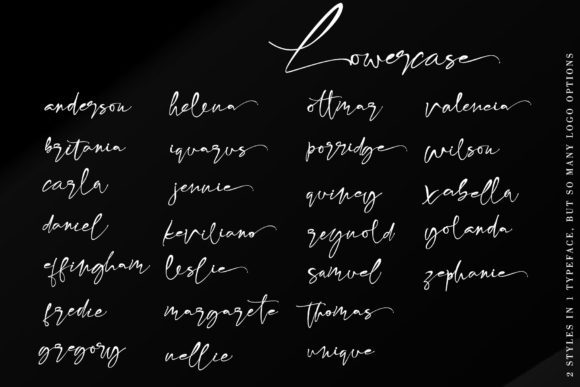 Lowercase
anderson
britania
carla
daniel
effingham
fredie
gregory
helena
iquarus
jennie
keviliano
leslie
margarete
nellie
ottmar
porridge
quincy
reynold
samuel
thomas
unique
valencia
wilson
xabella
yolanda
zephanie
2 STYLES IN 1 TYPEFACE, BUT SO MANY LOGO OPTIONS